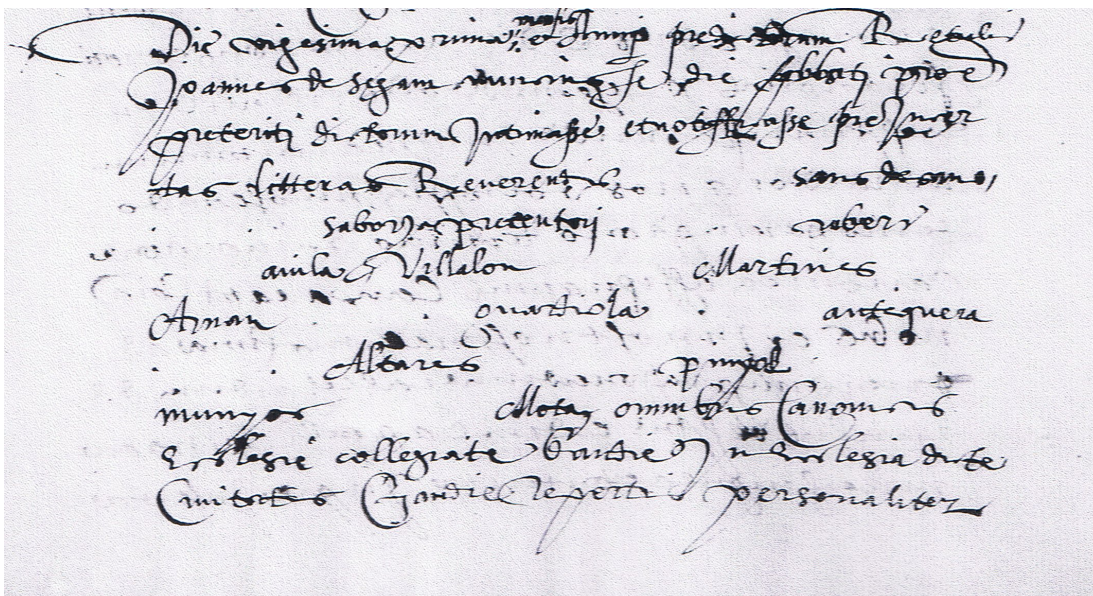 Die vigesima prima mensis et Junij predictorum Retulit
Joannes de segam nuncius se die sabbati proxime
preteriti dictorum Intimasse et notificasse pre Inser
tas litteras Reverentis sans de
saborja precentori roberi
avila Villalon Martines
Arnau antequera
Altares
munyos Mota omnibus Canonicis
Ecclesie collegiate Gandie in Ecclesia dicte
Civitatis Gandie repertis personaliter